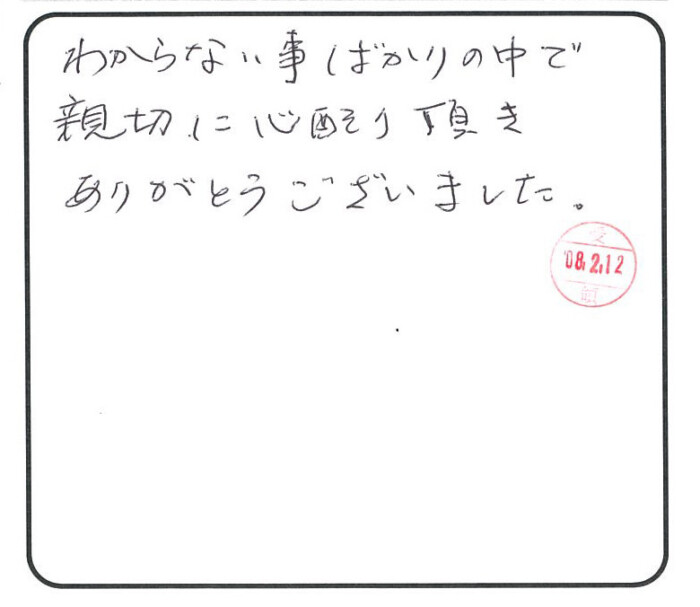 わからない事ばかりの中で
親切に心配り頂き
ありがとうございました。
'08.2.12